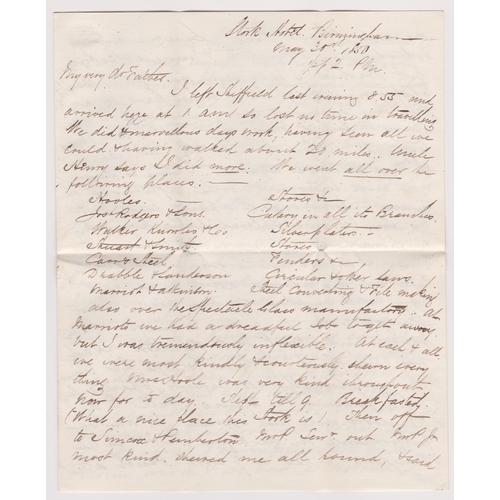 Stork Hotel. Birmingham
May 30th 1850
½ p 2. P.M.
My very dr Father.
I left Sheffield last evening 8.55 and
arrived here at 1 am so lost no time in travelling
We did a marvellous days work, having seen all we
could & having walked about 20 miles. Uncle
Henry says I did more. We went all over the
following places.
Hooles. Stoves &c
Jos Rodgers & Sons. Cutlery in all its Branches
Walker Knowles & Co Silverplaters.
Stuart & Smith Stoves
Fenders &c
Drabble & Sanderson Circular & other Saws.
Marriott & Atkinson Steel Converting & File making
also over the Spectacle Glass manufactory. At
Marriotts we had a dreadful job to get away,
but I was tremendously inflexible. At each & all
we were most kindly & courteously shewn every
thing Mr Hoole was very kind throughout
Now for to day. Slept till 9. Breakfasted
(What a nice place this Stork is!) Then off
to Simcox & Pemberton. Mr P. Senr out. Mr P. Jr
most kind. shewed me all round, & said